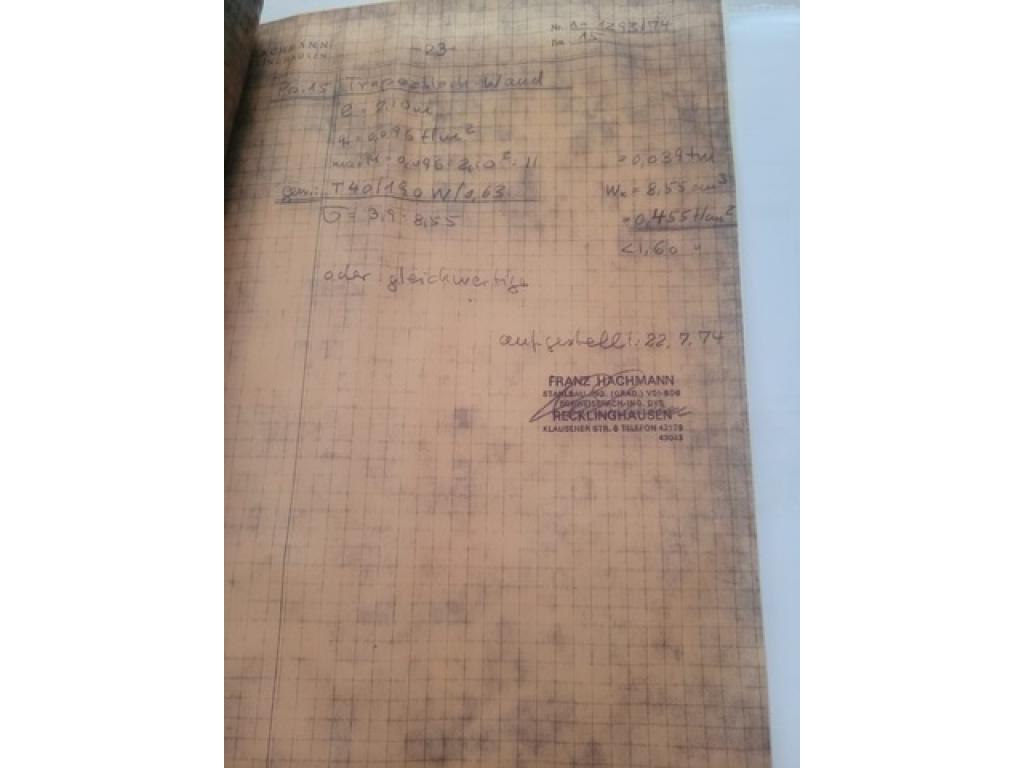 HACHMANN
-23-
Nr. A- 1293/74
15
Po. 15 Trapezblech Wand
l = 2,10 m
q = 0,096 t/m²
max M = 0,096 · 2,10² : 11 = 0,039 tm
gew.: T40/190 W/0,63. Wx = 8,55 cm³
σ = 3,9 : 8,55 = 0,455 t/cm²
< 1,60 "
oder gleichwertige
aufgestellt: 22.7.74
FRANZ HACHMANN
STAHLBAU-ING. (GRAD.) VDI-BDB
SCHWEISSFACH-ING. DVS
RECKLINGHAUSEN
KLAUSENER STR. 6 TELEFON 42179
43033